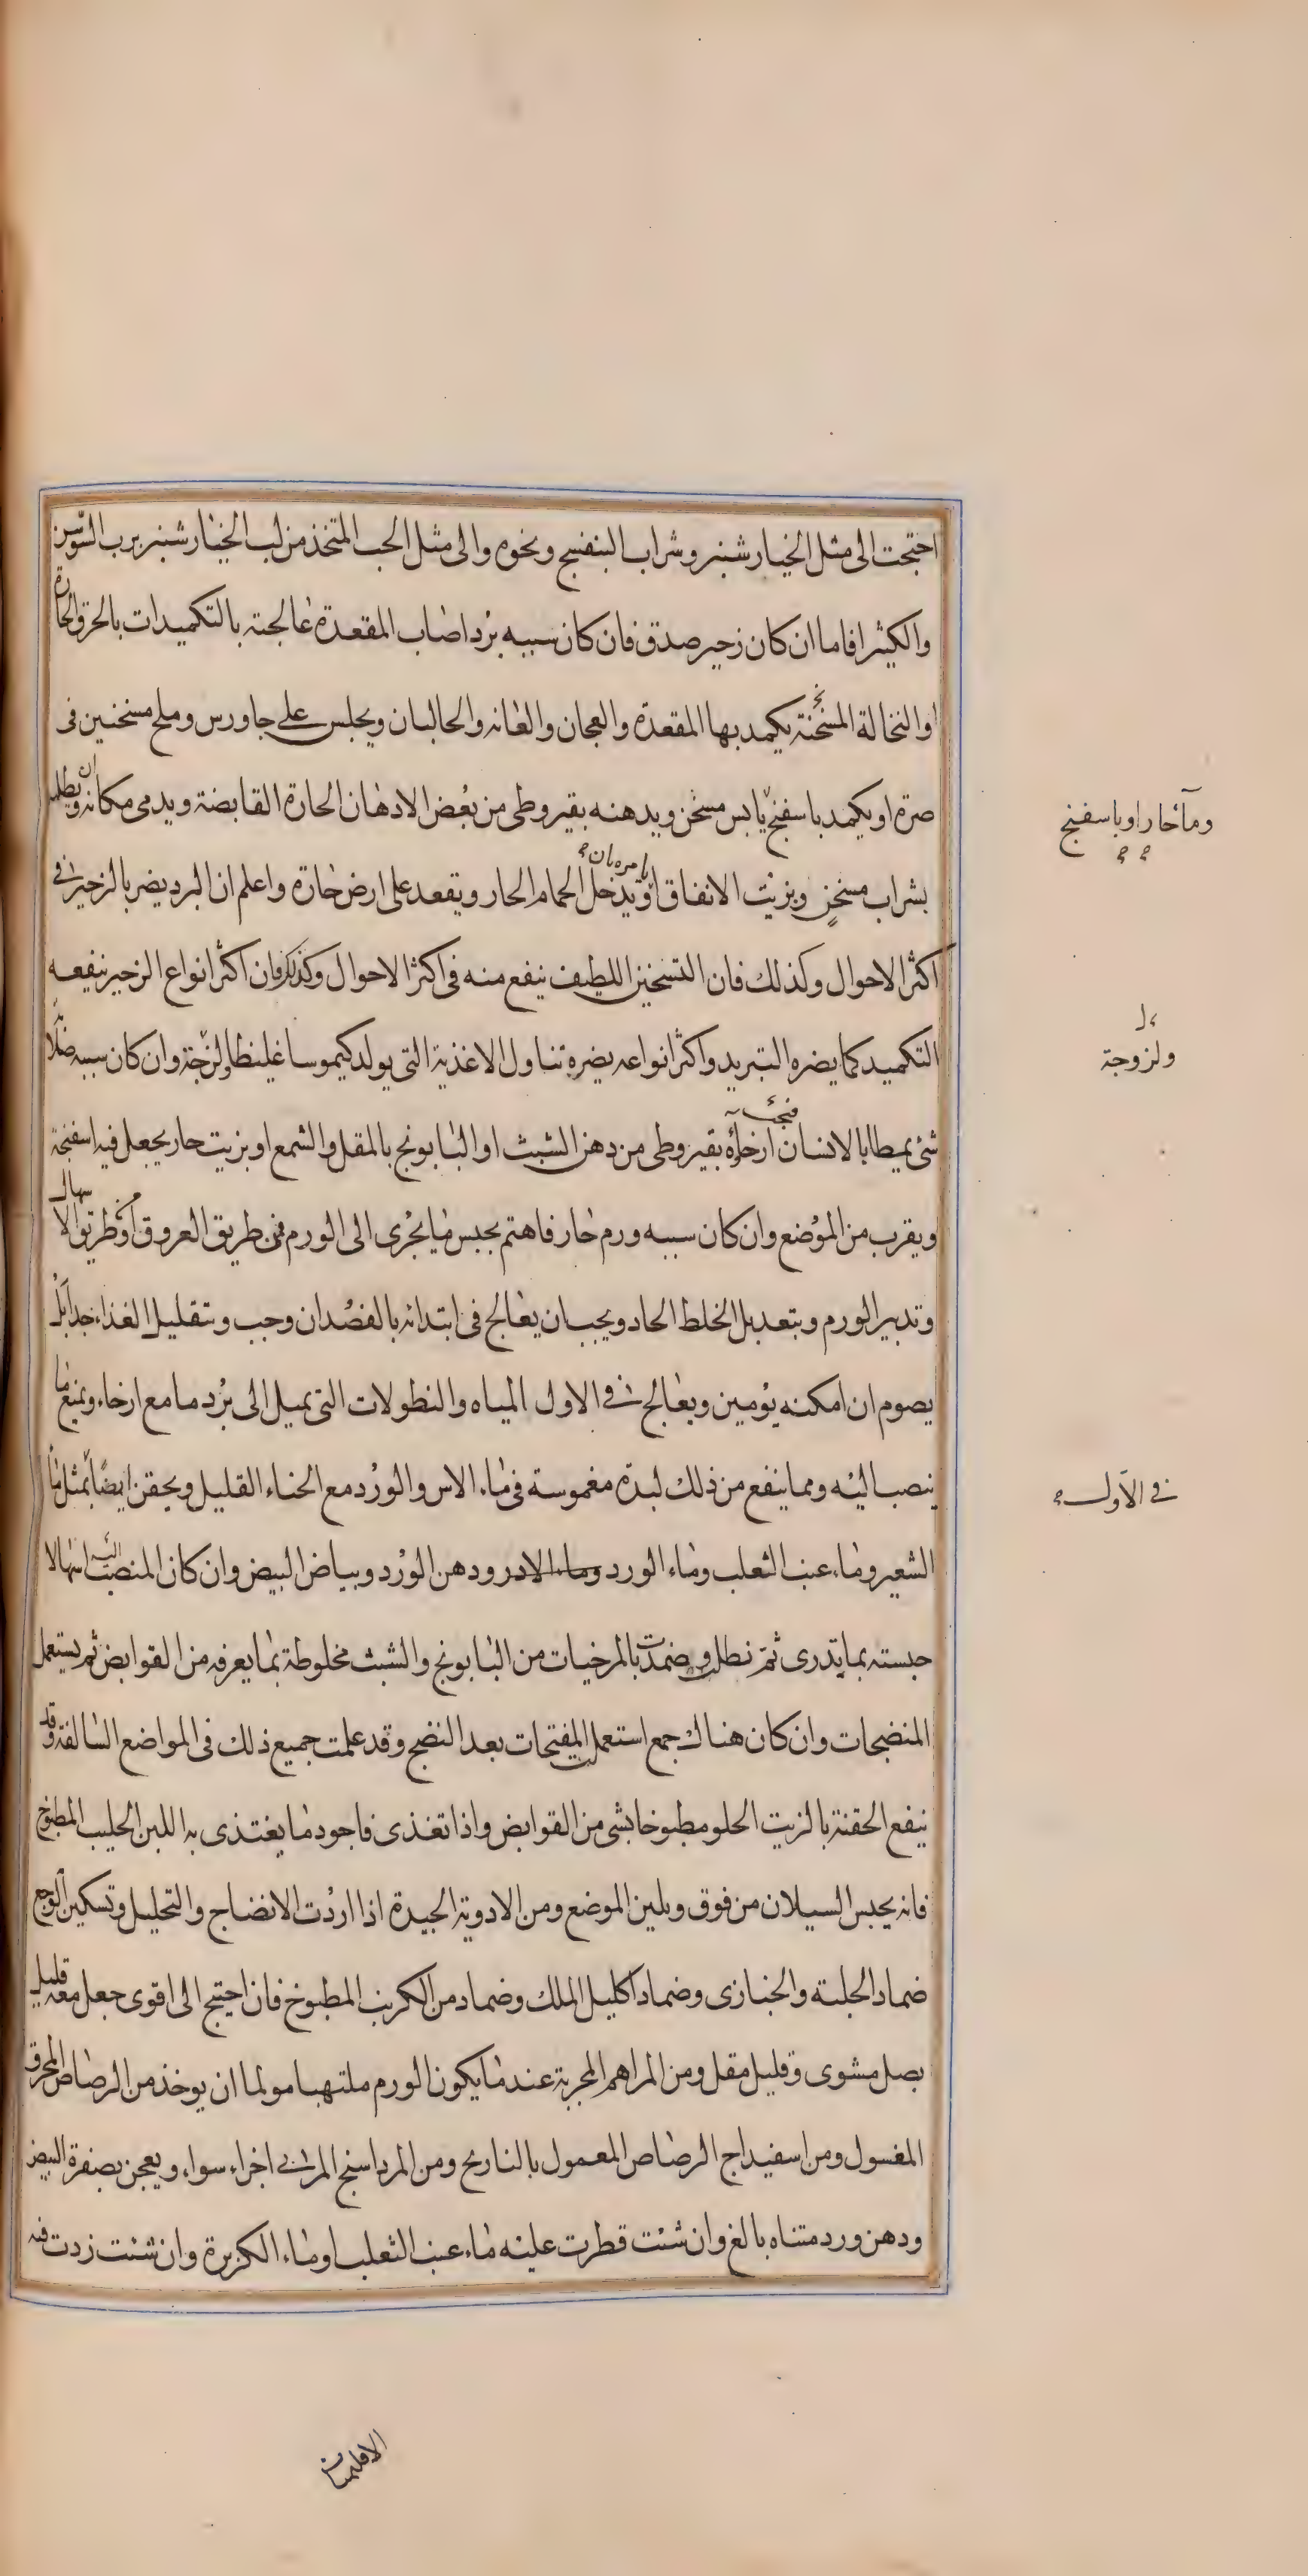 احتجت الى مثل الخيار شنبر وشراب البنفسج ونحوه والى مثل الحب المتخذ من لب الخيار شنبر برب السوس
والكثيرا فاما ان كان زحير صدق فان كان سببه برد اصاب المقعدة عالجته بالتكميدات بالخرق الحارة
او النخالة المسخنة يكمد بها المقعدة والعجان والعانه والحالبان ويجلس على جاورس وملح مسخنين فى
صرة او يكمد باسفنج يابس مسخن ويدهنه بقيروطى من بعض الادهان الحارة القابضة ويدمى مكانه وان يطلى
ومآء حار او باسفنج
بشراب مسخن وبزيت الانفاق او يدخل الحمام الحار ويقعد على ارض حارة واعلم ان البرد يضر بالزحير فى
اكثر الاحوال وكذلك فان التسخين اللطيف ينفع منه فى اكثر الاحوال وكذلك فان اكثر انواع الزحير ينفعه
التكميد كما يضره التبريد واكثر انواعه يضره تناول الاغذية التى يولد كيموسا غليظا ولزجة وان كان سببه صلابة
ولزوجة
شئ يميطا بالانسان ارخاؤه بقيروطى من دهن الشبث او البابونج بالمقل والشمع او بزيت حار يجعل فيه اسفنجة
فيجب
ويقرب من الموضع وان كان سببه ورم حار فاهتم بحبس ما يجرى الى الورم من طريق العروق او طريق الاسهال
وتدبير الورم وبتعديل الخلط الحاد ويجب ان يعالج فى ابتدائه بالفصد ان وجب وبتقليل الغذاء جدا بل
يصوم ان امكنه يومين ويعالج فى الاول المياه والنطولات التى يميل الى برد ما مع ارخاء ويمنع ما
ينصب اليه ومما ينفع من ذلك لبدة مغموسة فى ماء الاس والورد مع الحناء القليل ويحقن ايضا بمثل ماء
فى الاول
الشعير وماء عنب الثعلب وماء الورد ودهن الورد وبياض البيض وان كان المنصب اليه اسهالا
حبسته بما تدرى ثم نطلت وضمدت بالمرخيات من البابونج والشبث مخلوطة بما يعرفه من القوابض ثم يستعمل
المنضجات وان كان هناك جمع استعملت المفتحات بعد النضج وقد علمت جميع ذلك فى المواضع السالفة وقد
ينفع الحقنة بالزيت الحلو مطبوخا بشى من القوابض واذا تغذى فاجود ما يغتذى به اللبن الحليب المطبوخ
فانه يحبس السيلان من فوق ويلين الموضع ومن الادوية الجيدة اذا اردت الانضاج والتحليل وتسكين الوجع
ضماد الحلبة والخبازى وضماد اكليل الملك وضماد من الكرنب المطبوخ فان احتيج الى اقوى جعل معه قليل
بصل مشوى وقليل مقل ومن المراهم المجربة عند ما يكون الورم ملتهبا مولما ان يوخذ من الرصاص المحرق
المغسول ومن اسفيداج الرصاص المعمول بالنارنج ومن المرداسنج المربى اجزاء سواء ويعجن بصفرة البيض
ودهن ورد متناه بالغ وان شئت قطرت عليه ماء عنب الثعلب او ماء الكزبرة وان شئت زدت فيه
الاقليميا